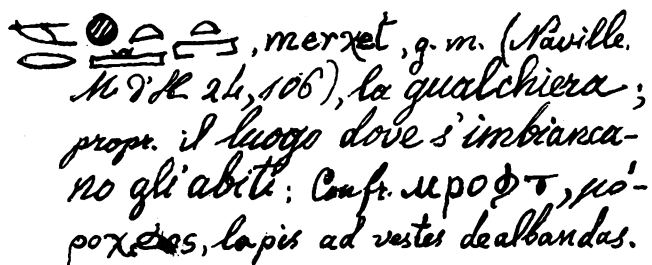 , merχet, g. m. (Naville.
M d'H 24, 106), la gualchiera ;
propr. il luogo dove s'imbianca-
no gli abiti; Confr. ⲙⲣⲟⲫⲧ, μό-
ροχθος, lapis ad vestes dealbandas.